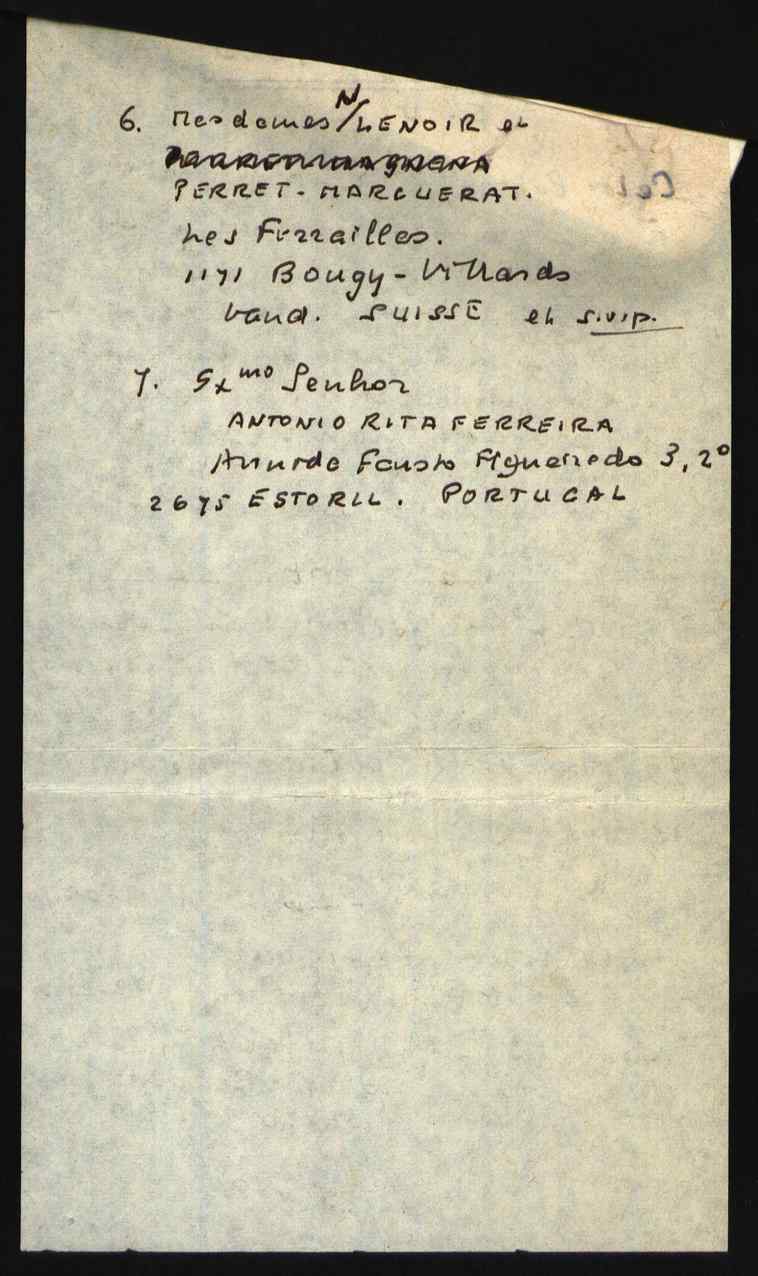 6. Mesdames N/LENOIR et
PERRET-MARGUERAT.
Les Ferrailles.
1171 Bougy-Villards
Vaud. SUISSE et s.v.p.
7. Exmo Senhor
ANTONIO RITA FERREIRA
Avnida Fausto Figueiredo 3, 2º
2675 ESTORIL. PORTUGAL